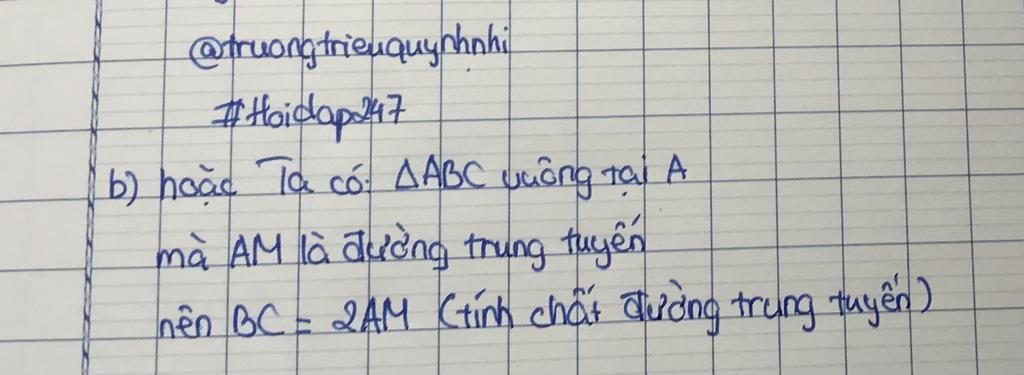 @truongtrieuquynhnhi
#Hoidap247
b) hoặc Ta có: ΔABC vuông tại A
mà AM là đường trung tuyến
nên BC = 2AM (tính chất đường trung tuyến)